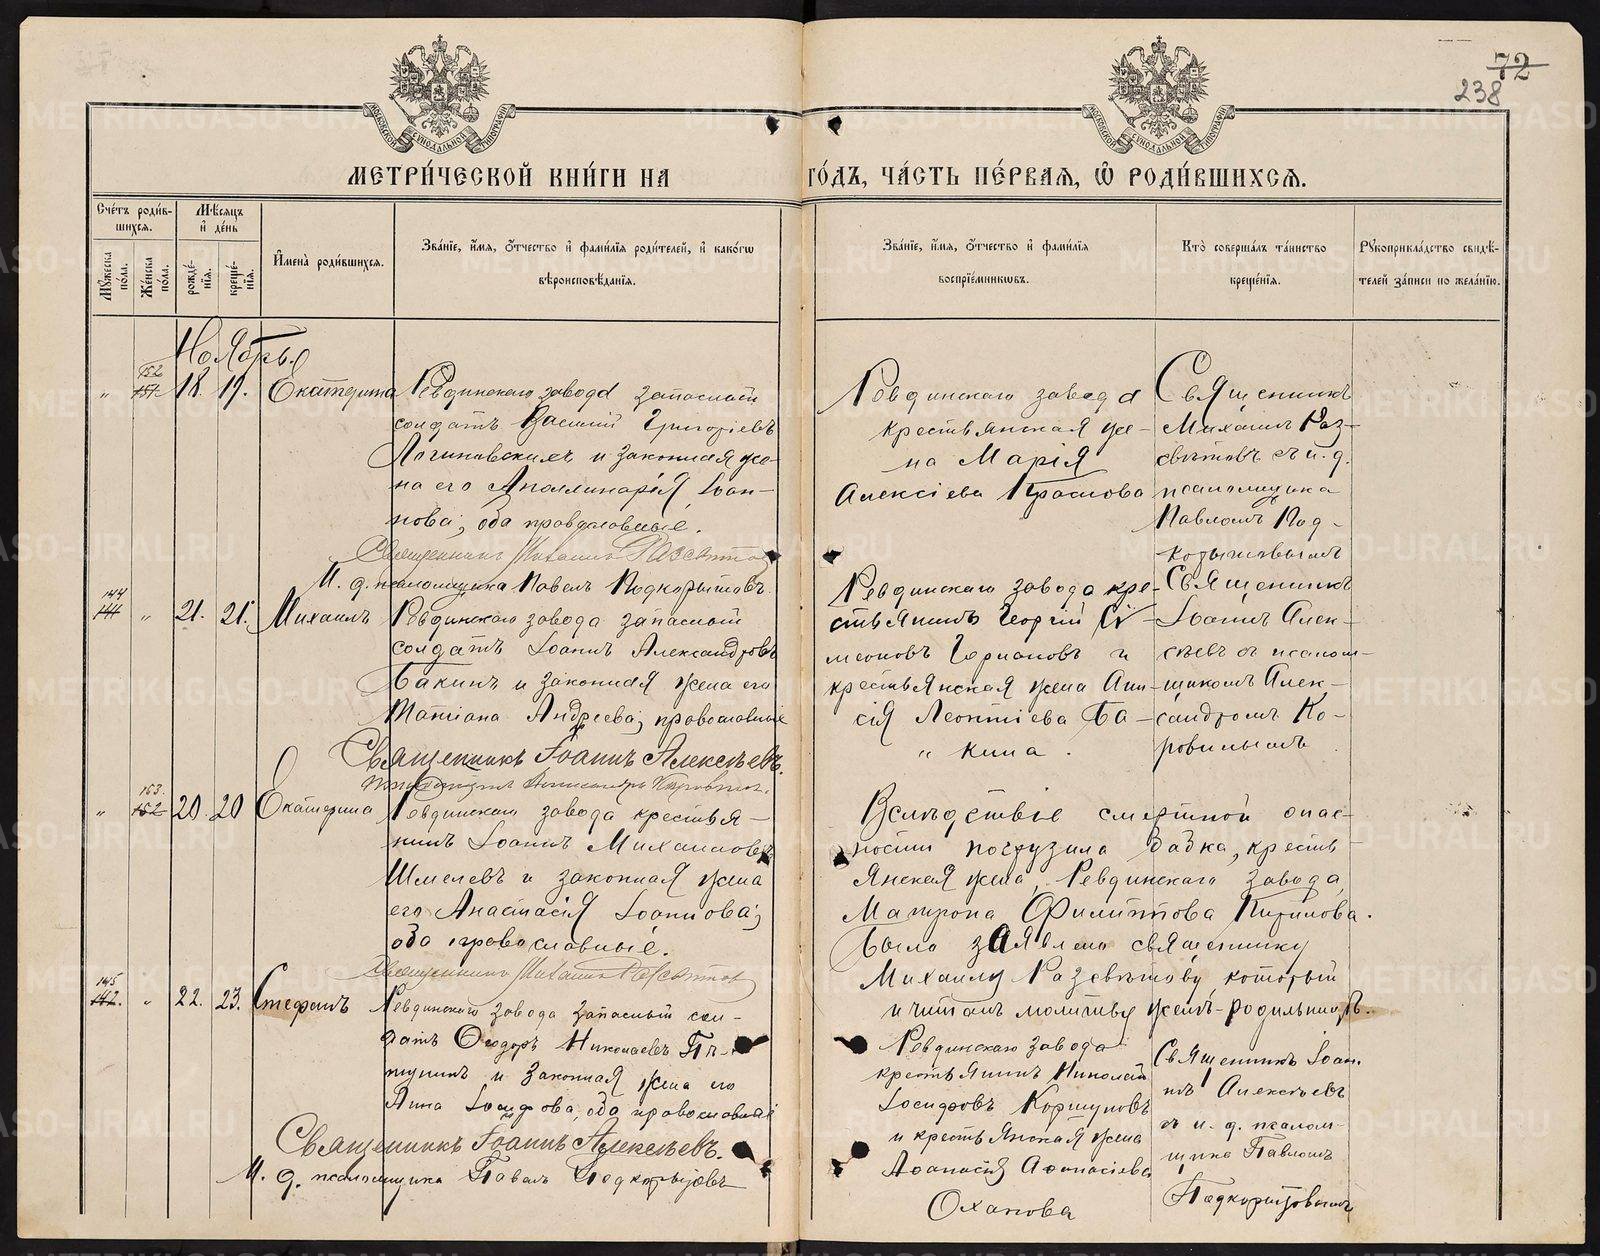 72
238
МОСКОВСКОЙ СѴНОДАЛЬНОЙ ТИПОГРАФІИ
МОСКОВСКОЙ СѴНОДАЛЬНОЙ ТИПОГРАФІИ
МЕТРИ́ЧЕСКОЙ КНИ́ГИ НА
ГО́ДЪ, ЧА́СТЬ ПЕ́РВАѦ, Ѡ РОДИ́ВШИХСѦ.
Сче́тъ роди́в-
шихсѧ.
Мꙋ́жеска по́ла.
Же́нска по́ла.
Мѣ́сѧцъ и҆ де́нь
рожде́-
нїѧ.
креще́-
нїѧ.
И҆мена̀ роди́вшихсѧ.
Зва́нїе, и҆́мѧ, ѻ҆́тчество и҆ фами́лїѧ роди́телей, и҆ како́гѡ
вѣроисповѣ́данїѧ.
Зва́нїе, и҆́мѧ, ѻ҆́тчество и҆ фами́лїѧ
воспрїе́мникѡвъ.
Кто̀ соверша́лъ та́инство
креще́нїѧ.
Рꙋкоприкла́дство свидѣ́-
телей за́писи по жела́нїю.
Ноябрь.
152
„ 151. 18. 19. Екатерина
Ревдинскаго завода запасный
солдатъ Василій Григоріевъ
Логиновскихъ и законная же-
на его Аполлинарія Іоан-
нова; оба православные.
Священникъ Михаилъ Разсвѣтовъ
И. д. псаломщика Павелъ Подкорытовъ.
Ревдинскаго завода
крестьянская же-
на Марія
Алексіева Краснова
Священникъ
Михаилъ Раз-
свѣтовъ съ и. д.
псаломщика
Павломъ Под-
корытовымъ
144
141 „ 21. 21. Михаилъ
Ревдинскаго завода запасный
солдатъ Іоаннъ Александровъ
Бакинъ и законная жена его
Татіана Андреева; православные
Священникъ Іоаннъ Алексѣевъ.
Псаломщикъ Александръ Коровинъ.
Ревдинскаго завода кре-
стьянинъ Георгій Си-
меоновъ и
крестьянская жена Ани-
сія Леонтіева Ба-
„ кина.
Священникъ
Іоаннъ Алек-
сѣевъ съ псалом-
щикомъ Алек-
сандромъ Ко-
ровинымъ
153.
„ 152 20. 20 Екатерина
Ревдинскаго завода крестья-
нинъ Іоаннъ Михаиловъ
Шмелевъ и законная жена
его Анастасія Іоаннова;
оба православные.
Священникъ Михаилъ Разсвѣтовъ
Вслѣдствіе смертной опас-
ности погрузила бабка, кресть-
янская жена, Ревдинскаго завода,
Матрона Филиппова
было заявлено священнику
Михаилу Разсвѣтову, который
и читалъ молитвы женѣ-родильницѣ.
145
142. „ 22. 23. Стефанъ
Ревдинскаго завода запасный сол-
датъ Ѳеодоръ Николаевъ Пѣ-
тунинъ и законная жена его
Анна Іосифова, оба православные
Священникъ Іоаннъ Алексѣевъ.
И. д. псаломщика Павелъ Подкорытовъ
Ревдинскаго завода
крестьянинъ Николай
Іосифовъ Коршуновъ
и крестьянская жена
Аѳанасія Аѳанасіева
Оханова
Священникъ Іоан-
нъ Алексѣевъ
съ и. д. псалом-
щика Павломъ
Подкорытовымъ